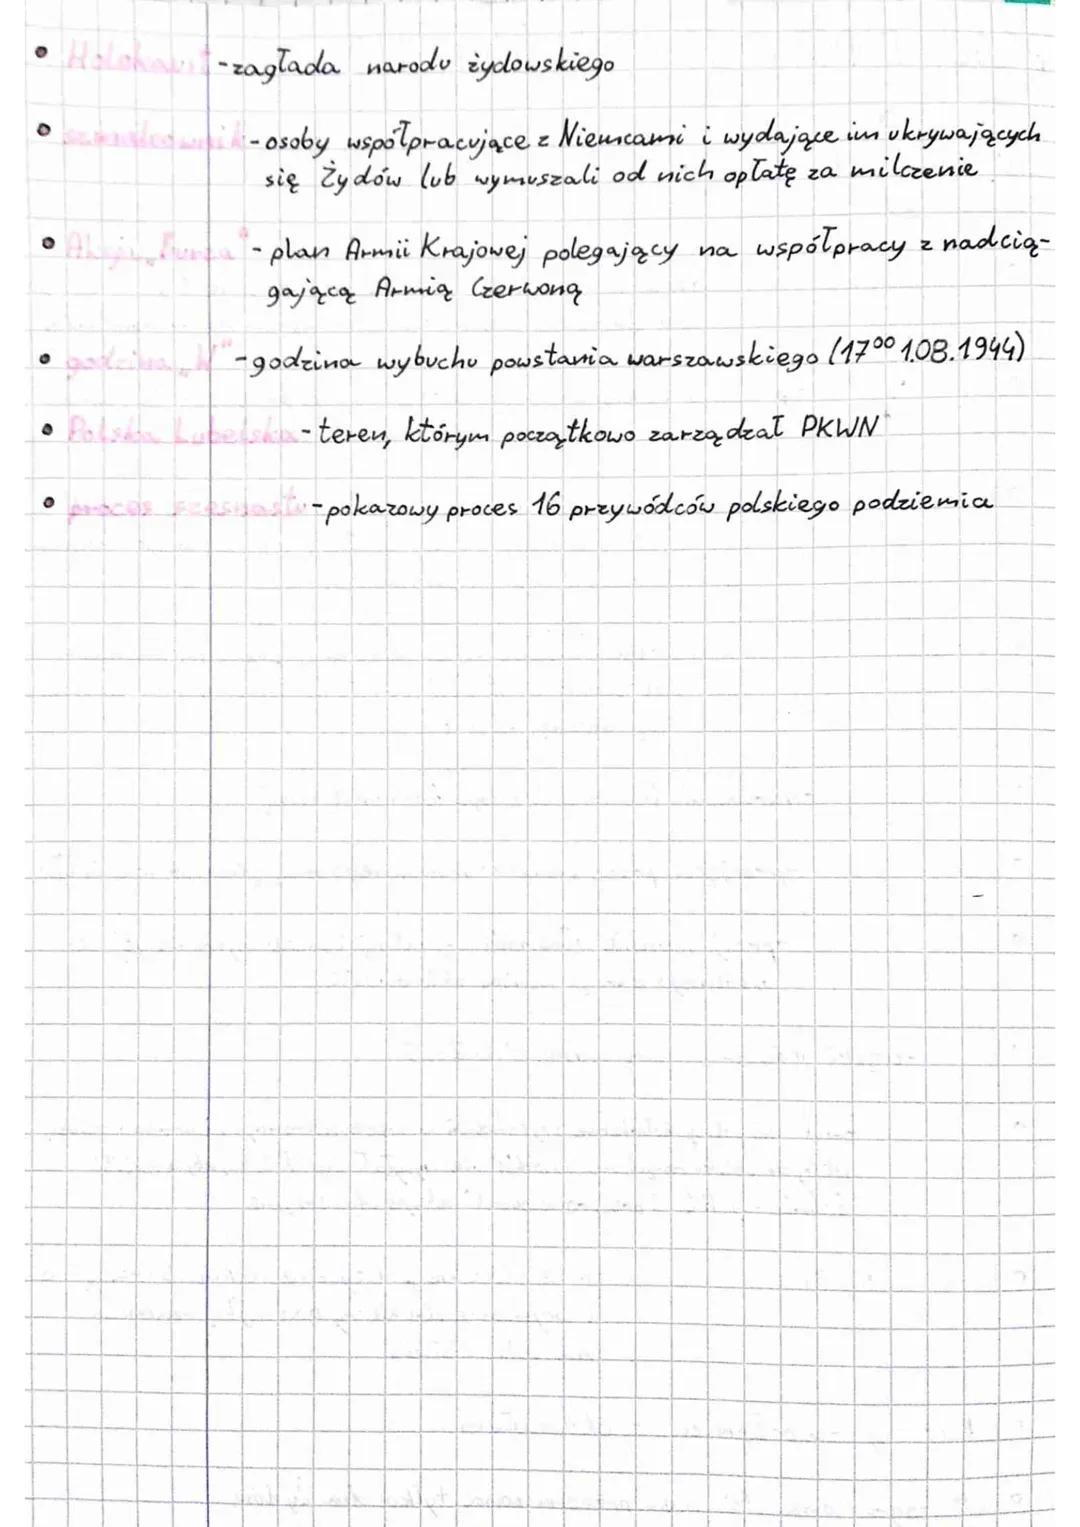 • Holokaust - zagłada narodu żydowskiego
• szmalcownik - osoby współpracujące z Niemcami i wydające im ukrywających
się Żydów lub wymuszali od nich opłatę za milczenie
• Akcja „Burza" - plan Armii Krajowej polegający na współpracy z nadcią-
gającą Armią Czerwoną
• godzina „W" - godzina wybuchu powstania warszawskiego (17⁰⁰ 1.08.1944)
• Polska Lubelska - teren, którym początkowo zarządzał PKWN
• proces szesnastu - pokazowy proces 16 przywódców polskiego podziemia